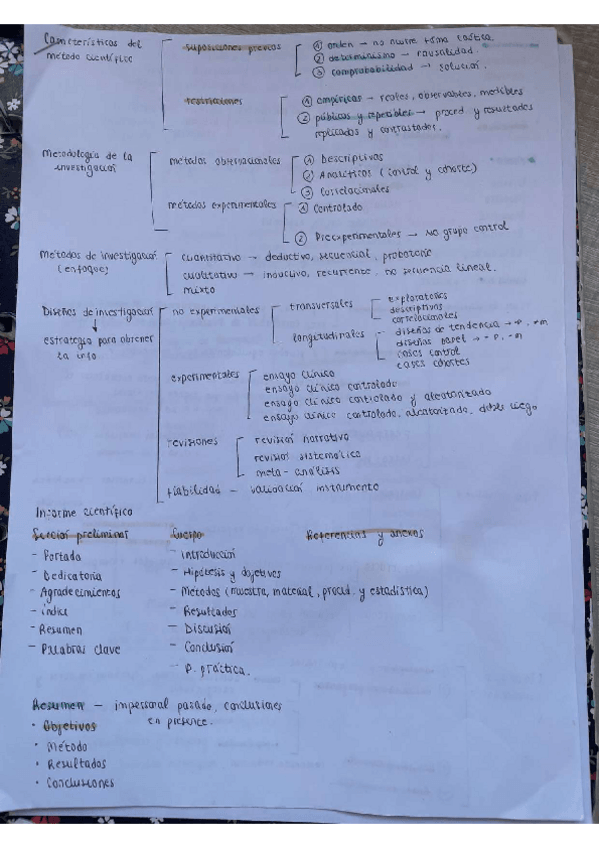 Características del
método científico
suposiciones previas
① orden → no ocurre forma caótica.
② determinismo → causalidad.
③ comprobabilidad → solución.
restricciones
① empíricas → reales, observables, medibles
② públicas y repetibles → proced y resultados
replicados y contrastados.
Metodología de la
investigación
métodos observacionales
① Descriptivos
② Analíticos (control y cohorte)
③ Correlacionales
métodos experimentales
① Controlado
② Preexperimentales → No grupo control
Métodos de investigación
(enfoque)
cuantitativo → deductivo, secuencial, probatorio
cualitativo → inductivo, recurrente, no secuencia lineal.
mixto
Diseños de investigación
estrategia para obtener
la info
no experimentales
transversales
exploratorios
descriptivos
correlacionales
longitudinales
diseños de tendencia → ≠p, =m
diseños panel → =p, =m
casos control
casos cohortes
experimentales
ensayo clínico
ensayo clínico controlado
ensayo clínico controlado y aleatorizado
ensayo clínico controlado, aleatorizado, doble ciego
revisiones
revisión narrativa
revisión sistemática
meta-análisis
fiabilidad - validación instrumento
Informe científico
Sección preliminar
- Portada
- Dedicatoria
- Agradecimientos
- índice
- Resumen
- Palabras clave
Cuerpo
- Introducción
- Hipótesis y objetivos
- Métodos (muestra, material, proced. y estadística)
- Resultados
- Discusión
- Conclusión
- P. práctica.
Referencias y anexos
Resumen - impersonal pasado, conclusiones
en presente.
• Objetivos
• Método
• Resultados
• Conclusiones